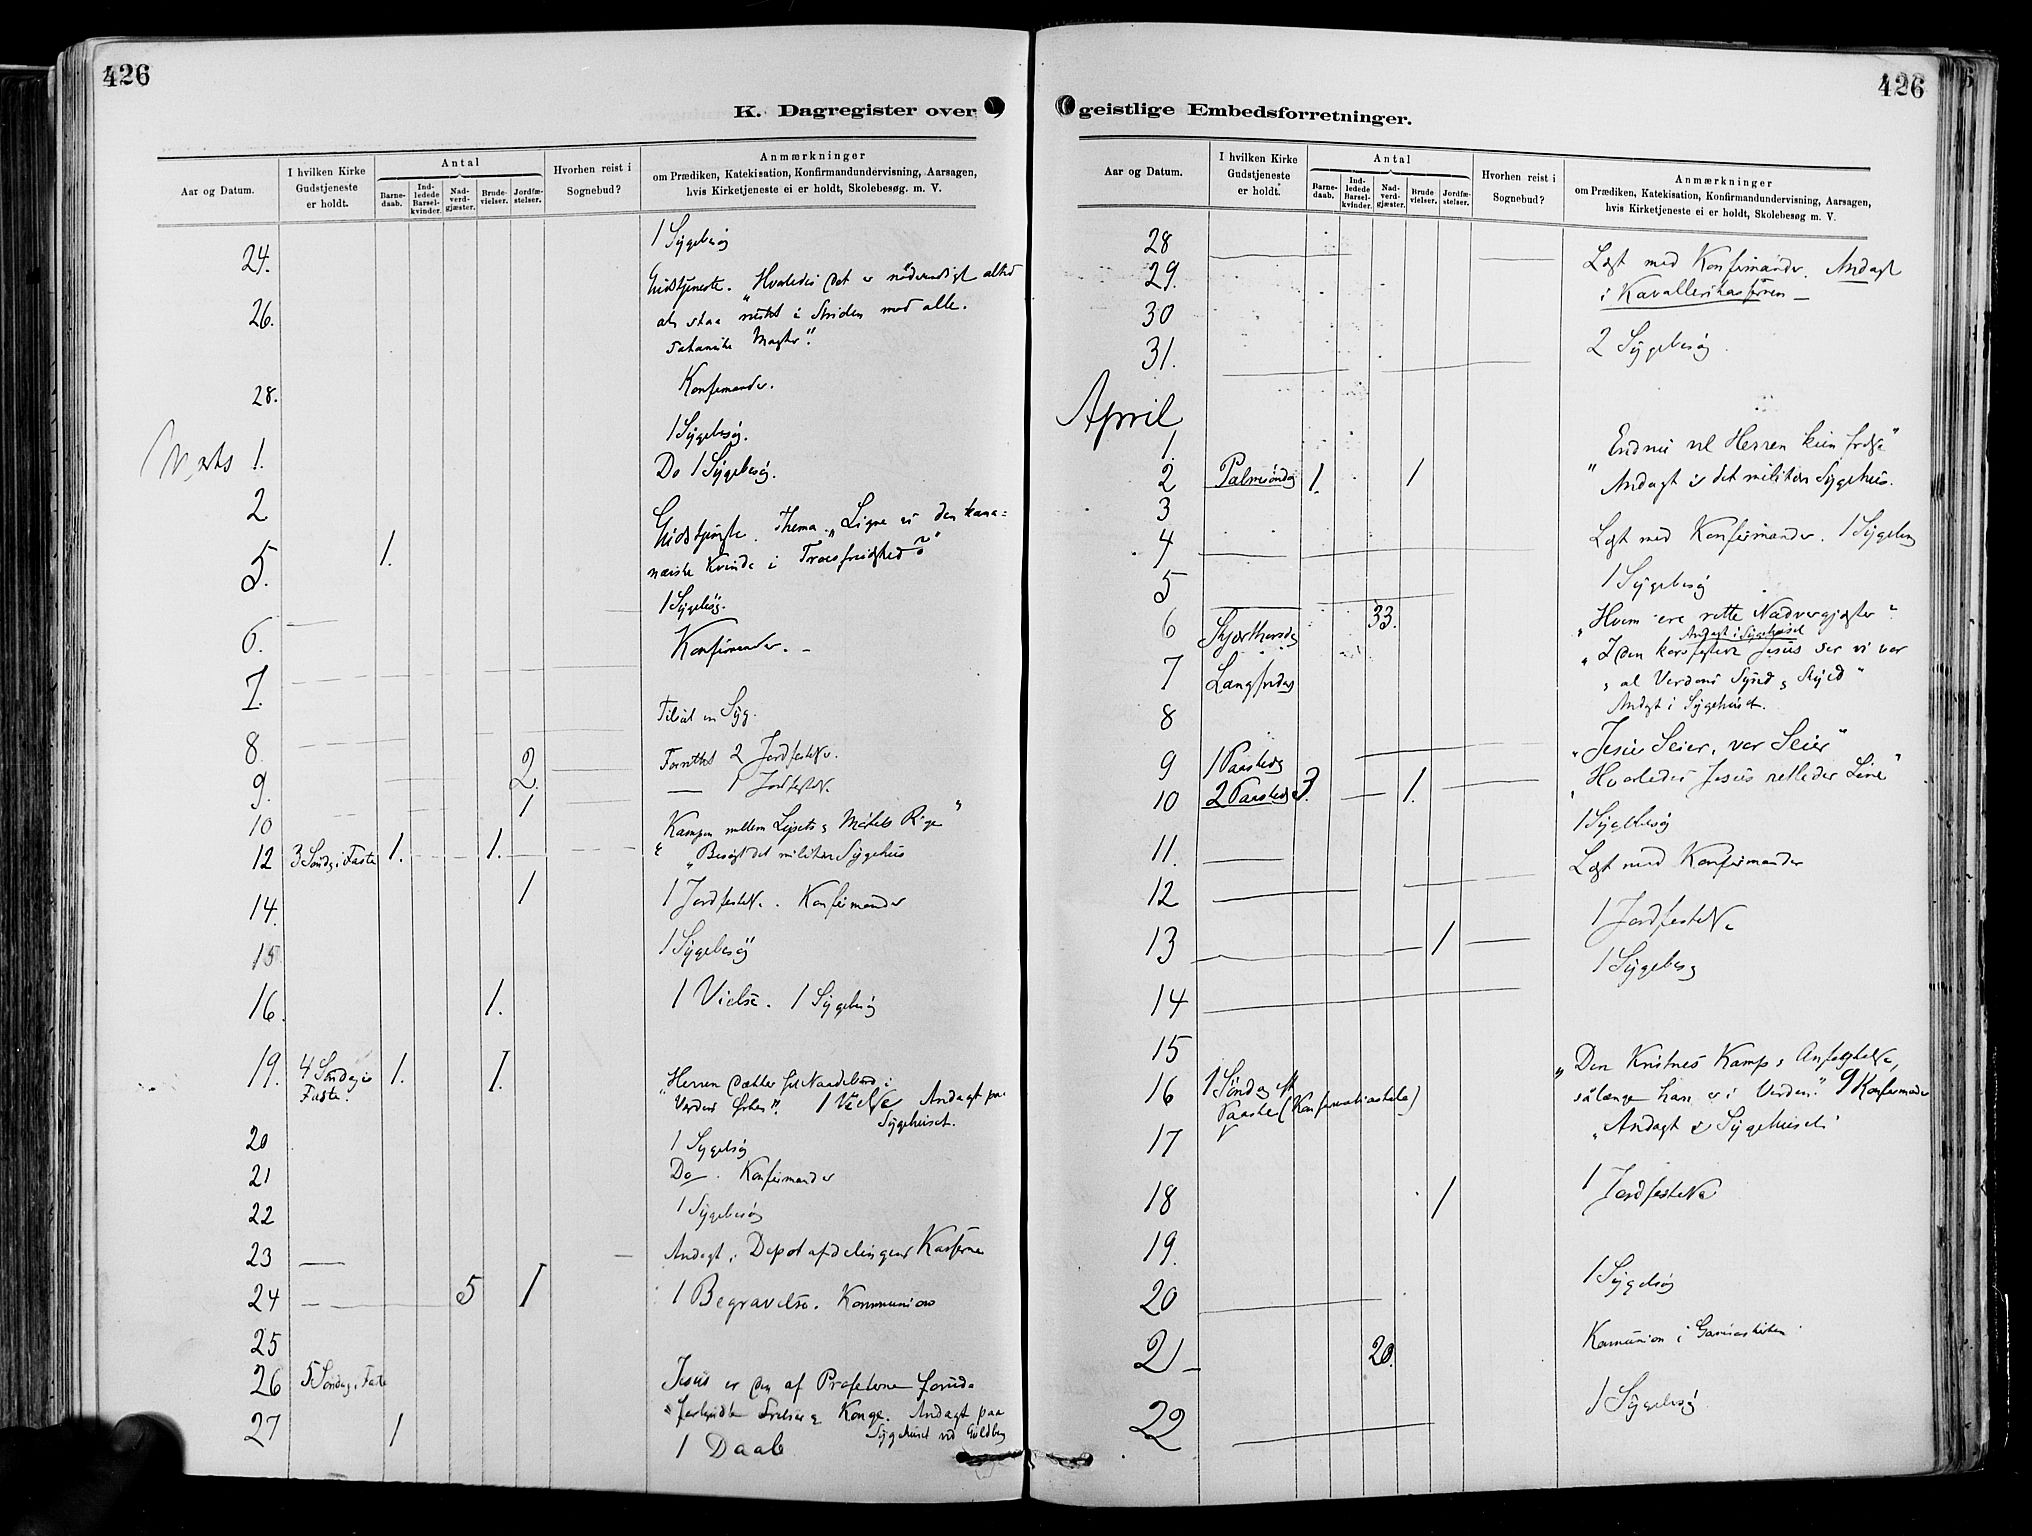 426
K. Dagregister over
Aar og Datum.
I hvilken Kirke Gudstjeneste er holdt.
Antal
Barne-daab.
Ind-ledede Barsel-kvinder.
Nad-verd-gjæster.
Brude-vielser.
Jordfæ-stelser.
Hvorhen reist i Sognebud?
Anmærkninger
om Prædiken, Katekisation, Konfirmandundervisning, Aarsagen,
hvis Kirketjeneste ei er holdt, Skolebesøg m. V.
24. 1 Sygebesøg
26. Gudstjeneste. "Hvorledes det er nödvendigt altid
at staa i Striden mod alle
sataniske Magter".
28. Konfirmander.
1 Sygebesøg.
Marts 1. Do 1 Sygebesøg.
2
5. 1. Gudstjeneste. Thema. "Ligne vi den kana=
næiske Kvinde i Troesfrimodighed?"
6. 1 Sygebesøg.
7. Konfirmander.
8. Tilsat en Syg.
9. 2. Forrettet 2 Jordfestelser.
10 1 — 1 Jordfestelse.
12 3 Søndag i Faste 1. 1. "Kampen mellem Lysets og Mörkets Rige"
"Besøgt det militære Sygehus
14. 1 1 Jordfestelse. Konfirmander
15 1 Sygebesøg
16. 1. 1 Vielse. 1 Sygebesøg
19. 4 Søndag i Faste. 1. 1. "Herren dækker sit Naadebord i
Verdens Ørken". 1 Vielse Andagt paa
Sygehuset.
20 1 Sygebesøg
21 Do. Konfirmander
22 1 Sygebesøg
23 Andagt i Depotafdelingens Kaserne
24 5 1 1 Begravelse. Kommunion
25
26 5 Søndag i Faste Jesus er den af Profeterne forud
forkyndte Frelser og Konge. Andagt paa
Sygehuset ved
27 1 1 Daab
426
geistlige Embedsforretninger.
Aar og Datum.
I hvilken Kirke Gudstjeneste er holdt.
Antal
Barne-daab.
Ind-ledede Barsel-kvinder.
Nad-verd-gjæster.
Brude vielser.
Jordfæ-stelser.
Hvorhen reist i Sognebud?
Anmærkninger
om Prædiken, Katekisation, Konfirmandundervisning, Aarsagen,
hvis Kirketjeneste ei er holdt, Skolebesøg m. V.
28 Læst med Konfirmander. Andagt
29. i Kavallerikasernen
30
31. 2 Sygebesøg
April
1. "Endnu vil Herren frelse"
2 Palmesøndag 1. 1 "Andagt i det militære Sygehus.
3
4 Læst med Konfirmander. 1 Sygebesøg
5 1 Sygebesøg
6 Skjærthorsdag 33. "Hvem ere rette Nadvergjæster"
Andagt i Sygehuset
7 Langfredag "I den korsfestede Jesus ser vi vor
og al Verdens Synd og Skyld"
8 Andagt i Sygehuset.
9 1 Paaskedag "Jesus Seier, vor Seier"
10 2 Paaskedag 3. 1. "Hvorledes Jesus retleder Sine"
11. 1 Sygebesøg
12 Læst med Konfirmander
13 1 1 Jordfestelse
14 1 Sygebesøg
15
16 1 Søndag eft Paaske (Konfirmationsdele) "Den Kristnes Kamp og Anfegtelse,
sålænge han er i Verden". 9 Konfirmander
17 "Andagt i Sygehuset"
18 1 1 Jordfestelse
19.
20 1 Sygebesøg
21 20. Komunion i Garnisonskirken
22 1 Sygebesøg